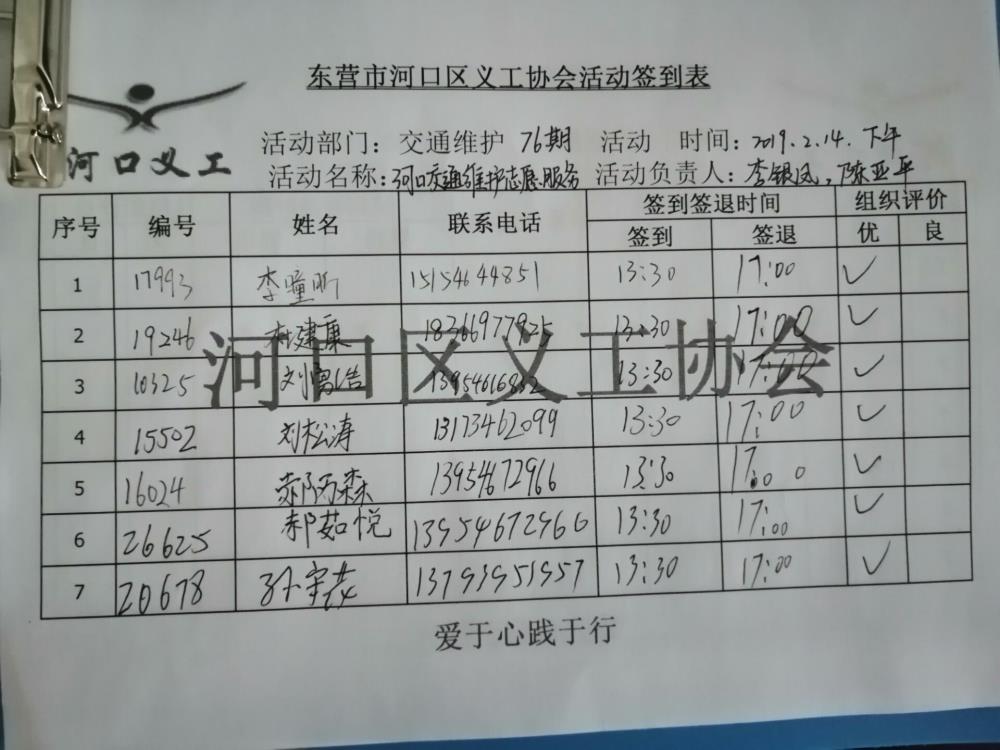 东营市河口区义工协会活动签到表
河口义工
活动部门：交通维护 76期 活动 时间：2019.2.14.下午
活动名称：河口交通维护志愿服务 活动负责人：李银凤，陈亚平
序号 编号 姓名 联系电话 签到签退时间 组织评价
签到 签退 优 良
1 17993 李瞳昕 15154644851 13:30 17:00 ✓
2 19246 杜建康 18366977925 13:30 17:00 ✓
3 10325 刘 浩 13954616852 13:30 17:00 ✓
4 15502 刘松涛 13173462099 13:30 17:00 ✓
5 16024 郝 森 13954672966 13:30 17:00 ✓
6 26625 郝茹悦 13954672966 13:30 17:00 ✓
7 20678 孙 13793951957 13:30 17:00 ✓
河口区义工协会
爱于心践于行